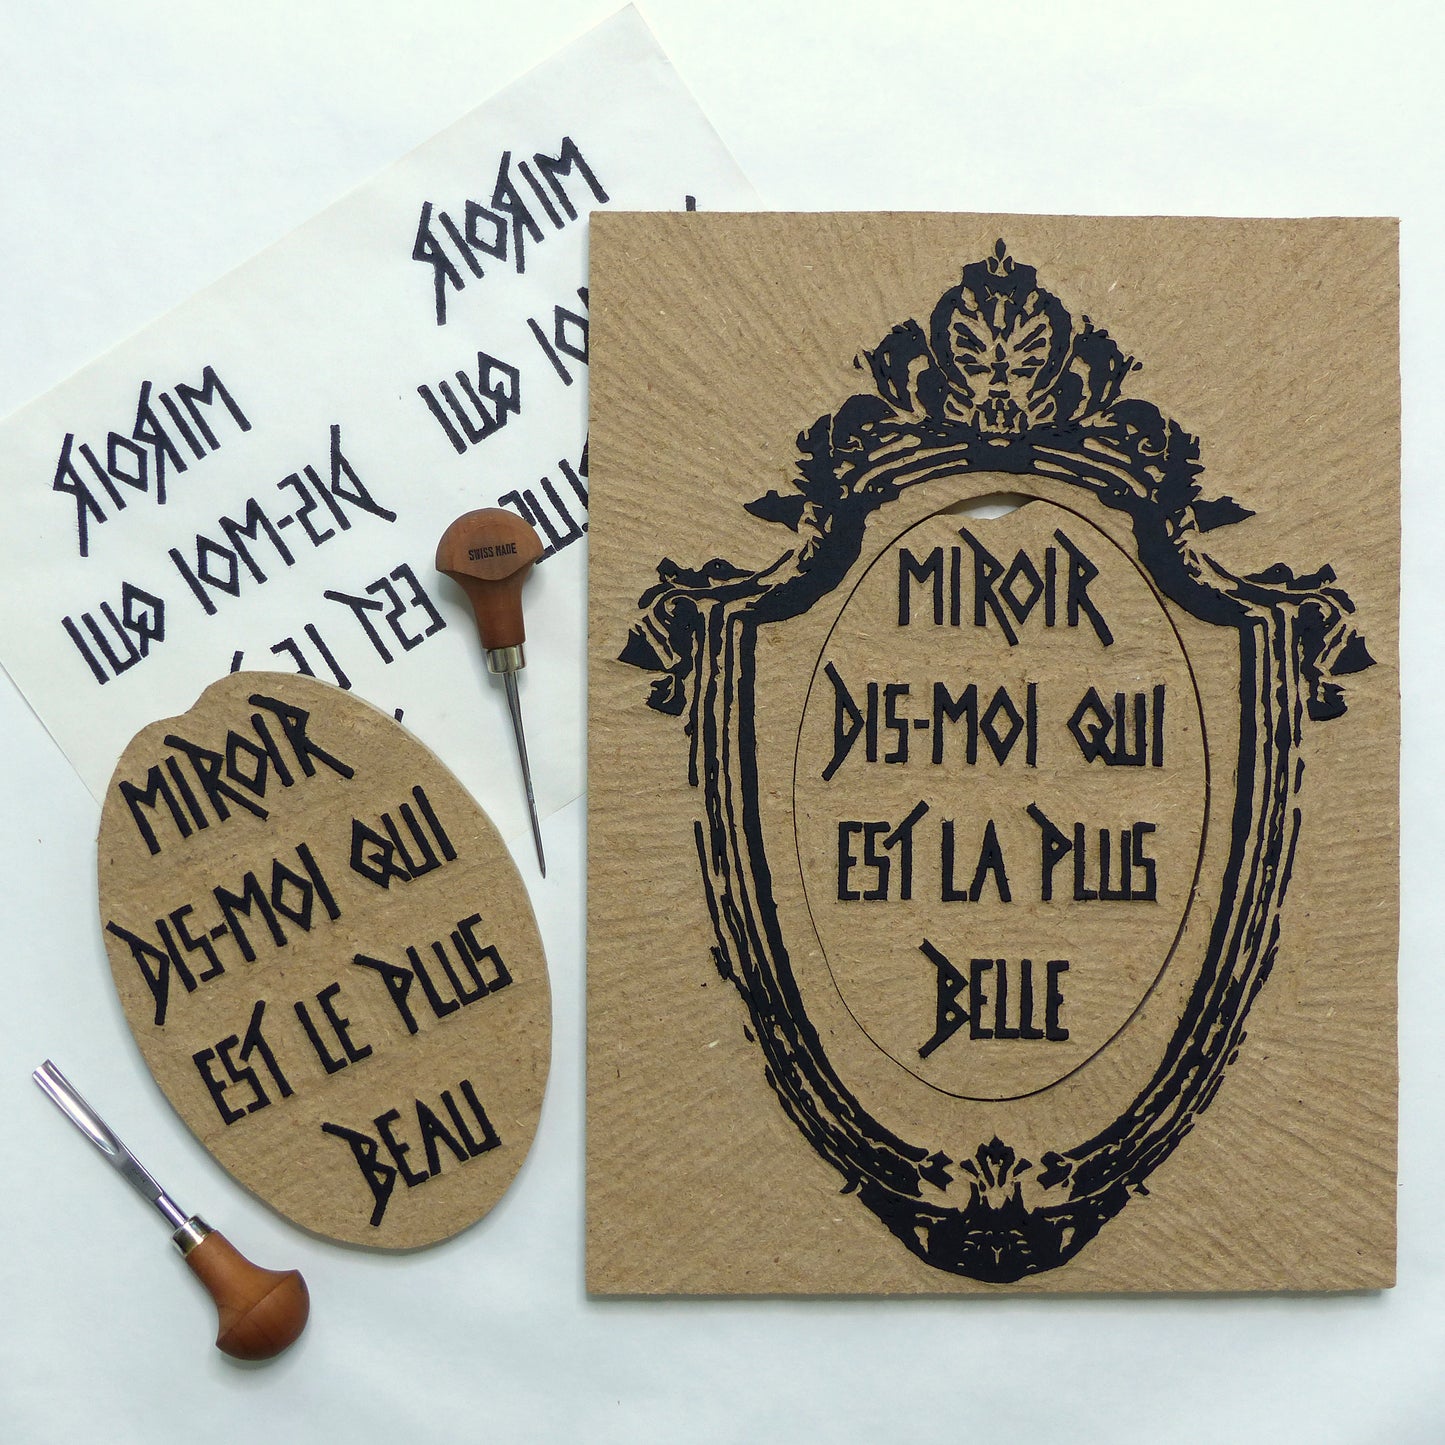 MIROIR
DIS-MOI QUI
EST LA PLUS
BELLE
MIROIR
DIS-MOI QUI
EST LE PLUS
BEAU
SWISS MADE
MIROIR
DIS-MOI QUI
EST LE
MIROIR
MOI QUI